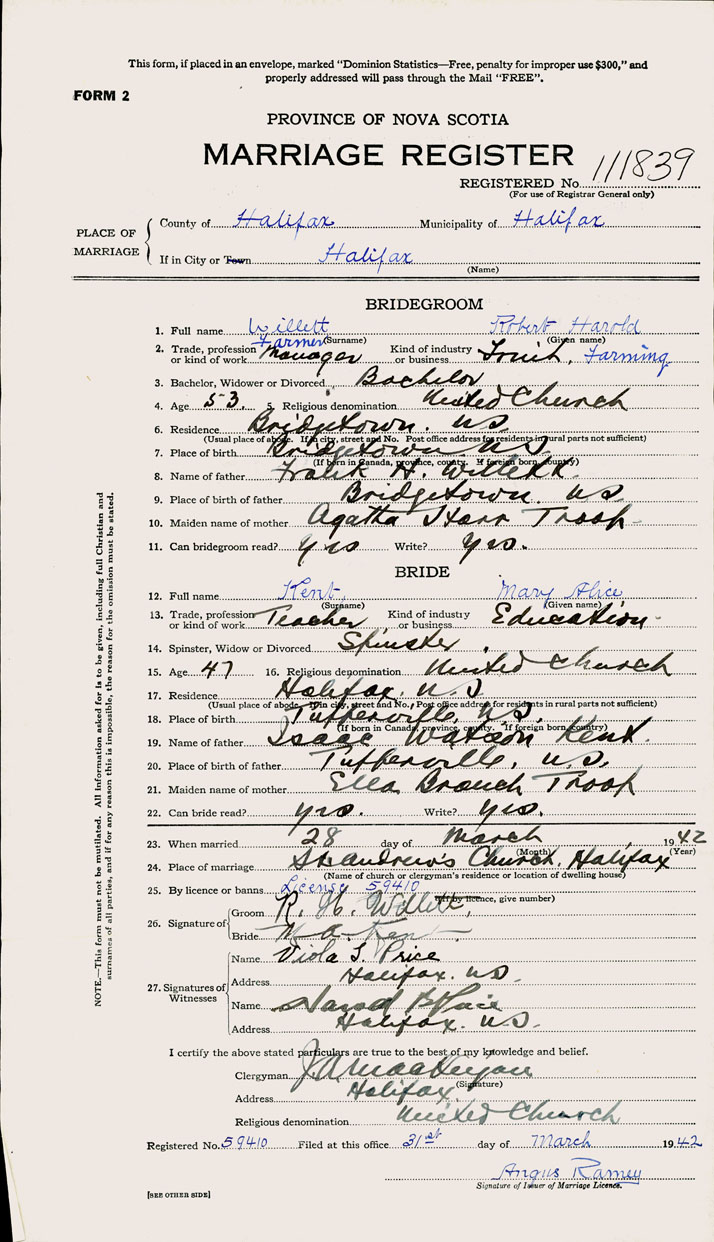 This form, if placed in an envelope, marked "Dominion Statistics—Free, penalty for improper use $300," and
properly addressed will pass through the Mail "FREE".
FORM 2
PROVINCE OF NOVA SCOTIA
MARRIAGE REGISTER
111839
REGISTERED No.
(For use of Registrar General only)
PLACE OF MARRIAGE
County of Halifax Municipality of Halifax
If in City or Town Halifax
(Name)
BRIDEGROOM
1. Full name Willett Robert Harold
(Surname) (Given name)
2. Trade, profession or kind of work Farmer Manager Kind of industry or business Fruit, Farming
3. Bachelor, Widower or Divorced Bachelor
4. Age 53. 5. Religious denomination United Church
6. Residence Bridgetown. N.S.
(Usual place of abode. If in city, street and No. Post office address for residents in rural parts not sufficient)
7. Place of birth Bridgetown N.S.
(If born in Canada, province, county. If foreign born, country)
8. Name of father Frank H. Willett
9. Place of birth of father Bridgetown. N.S
10. Maiden name of mother Agatha Troop
11. Can bridegroom read? yes Write? yes.
BRIDE
12. Full name Kent, Mary Alice
(Surname) (Given name)
13. Trade, profession or kind of work Teacher Kind of industry or business Education
14. Spinster, Widow or Divorced Spinster
15. Age 47 16. Religious denomination United Church
17. Residence Halifax. N.S
(Usual place of abode. If in city, street and No. Post office address for residents in rural parts not sufficient)
18. Place of birth Tupperville, N.S.
(If born in Canada, province, county. If foreign born, country)
19. Name of father Isaac Watson Kent.
20. Place of birth of father Tupperville, N.S.
21. Maiden name of mother Ella Troop
22. Can bride read? yes. Write? yes.
23. When married 28 day of March 1942
(Month) (Year)
24. Place of marriage St. Andrew's Church, Halifax
(Name of church or clergyman's residence or location of dwelling house)
25. By licence or banns License 59410
(If by licence, give number)
26. Signature of
Groom R. H. Willett
Bride M A Kent
27. Signatures of Witnesses
Name Viola I. Price
Address Halifax. N.S.
Name
Address Halifax. N.S.
I certify the above stated particulars are true to the best of my knowledge and belief.
Clergyman
(Signature)
Address Halifax
Religious denomination United Church
Registered No. 59410 Filed at this office 31st day of March 1942
Angus Ramey
Signature of Issuer of Marriage Licence.
[SEE OTHER SIDE]
NOTE.—This form must not be mutilated. All information asked for is to be given, including full Christian and
surnames of all parties, and if for any reason this is impossible, the reason for the omission must be stated.